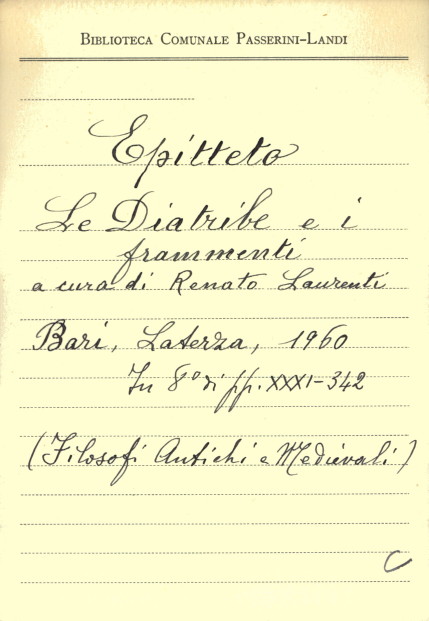 BIBLIOTECA COMUNALE PASSERINI-LANDI
Epitteto
Le Diatribe e i
frammenti
a cura di Renato Laurenti
Bari, Laterza, 1960
In 8° di pp. XXXI-342
(Filosofi Antichi e Medievali)
C